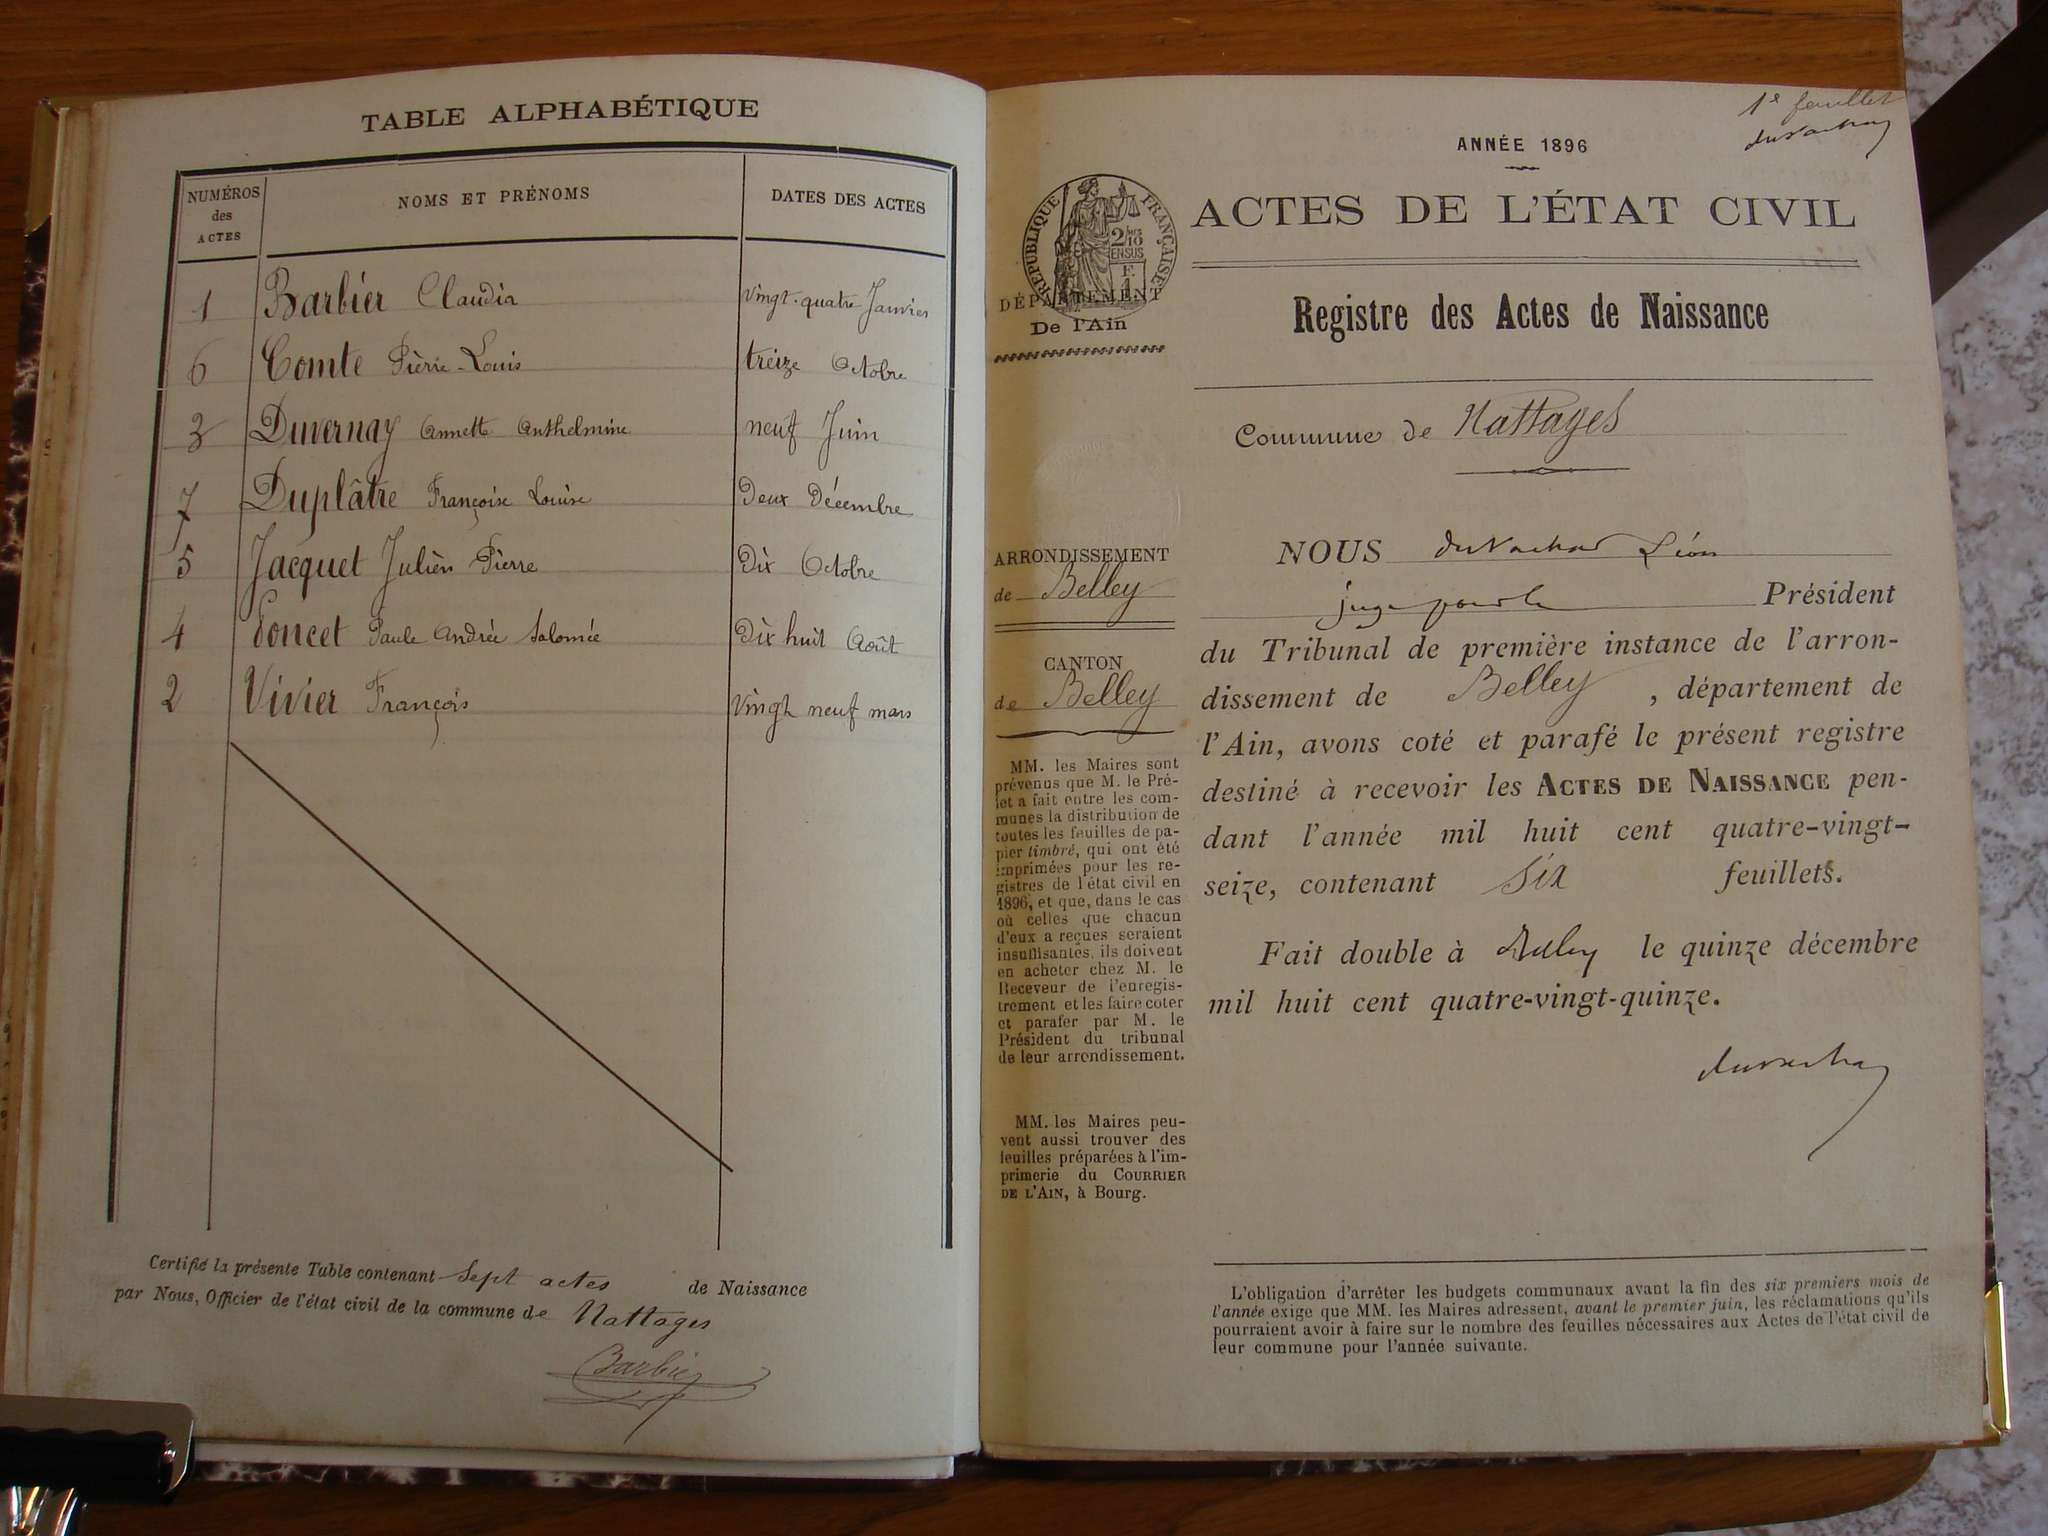 TABLE ALPHABÉTIQUE
NUMÉROS des ACTES NOMS ET PRÉNOMS DATES DES ACTES
1 Barbier Claudia Vingt-quatre Janvier
6 Comte Pierre-Louis treize Octobre
3 Duvernay Annette Anthelmine neuf Juin
7 Duplâtre Françoise Louise Deux Décembre
5 Jacquet Julien Pierre Dix Octobre
4 Poncet Paule Andrée Salomée Dix huit Août
2 Vivier François Vingt neuf mars
Certifié la présente Table contenant Sept actes de Naissance
par Nous, Officier de l'état civil de la commune de Nattages
Barbier
1e feuillet
ANNÉE 1896
ACTES DE L'ÉTAT CIVIL
RÉPUBLIQUE FRANÇAISE
2/10 EN SUS
DÉPARTEMENT
De l'Ain
Registre des Actes de Naissance
Commune de Nattages
ARRONDISSEMENT
de Belley
CANTON
de Belley
MM. les Maires sont
prévenus que M. le Pré-
fet a fait entre les com-
munes la distribution de
toutes les feuilles de pa-
pier timbré, qui ont été
imprimées pour les re-
gistres de l'état civil en
1896, et que, dans le cas
où celles que chacun
d'eux a reçues seraient
insuffisantes, ils doivent
en acheter chez M. le
Receveur de l'enregis-
trement et les faire coter
et parafer par M. le
Président du tribunal
de leur arrondissement.
MM. les Maires peu-
vent aussi trouver des
feuilles préparées à l'im-
primerie du COURRIER
DE L'AIN, à Bourg.
NOUS Léon
juge pour le Président
du Tribunal de première instance de l'arron-
dissement de Belley, département de
l'Ain, avons coté et parafé le présent registre
destiné à recevoir les ACTES DE NAISSANCE pen-
dant l'année mil huit cent quatre-vingt-
seize, contenant six feuillets.
Fait double à Belley le quinze décembre
mil huit cent quatre-vingt-quinze.
L'obligation d'arrêter les budgets communaux avant la fin des six premiers mois de
l'année exige que MM. les Maires adressent, avant le premier juin, les réclamations qu'ils
pourraient avoir à faire sur le nombre des feuilles nécessaires aux Actes de l'état civil de
leur commune pour l'année suivante.